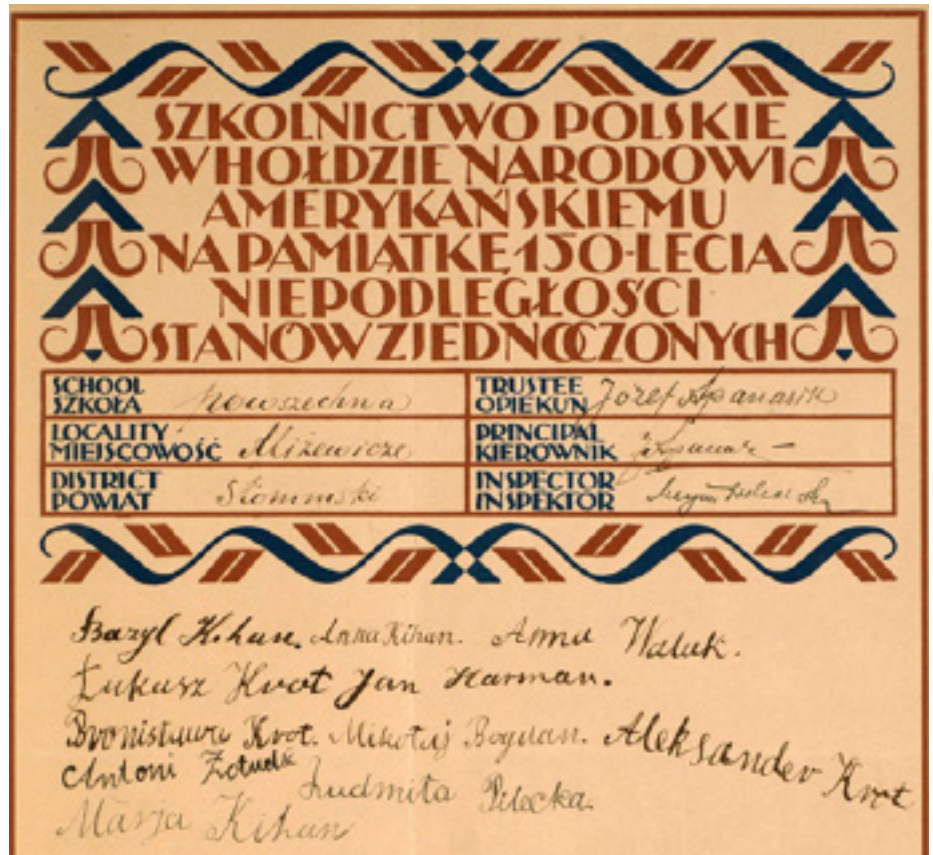 SZKOLNICTWO POLSKIE
W HOŁDZIE NARODOWI
AMERYKAŃSKIEMU
NA PAMIĄTKĘ 150-LECIA
NIEPODLEGŁOŚCI
STANÓW ZJEDNOCZONYCH
SCHOOL
SZKOŁA Powszechna
TRUSTEE
OPIEKUN Józef Apanasik
LOCALITY
MIEJSCOWOŚĆ Miżewicze
PRINCIPAL
KIEROWNIK
DISTRICT
POWIAT Słonimski
INSPECTOR
INSPEKTOR
Bazyl Kihan. Anna Kihan. Anna Waluk.
Łukasz Krot Jan Harman.
Bronisława Krot. Mikołaj Bogdan. Aleksander Krot
Antoni Ludmiła Pilecka.
Marja Kihan